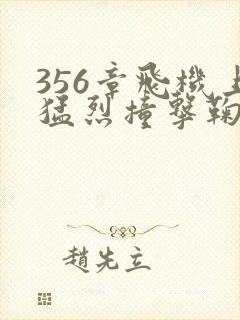 356章飛機上
猛烈撞擊鞠
趙先立